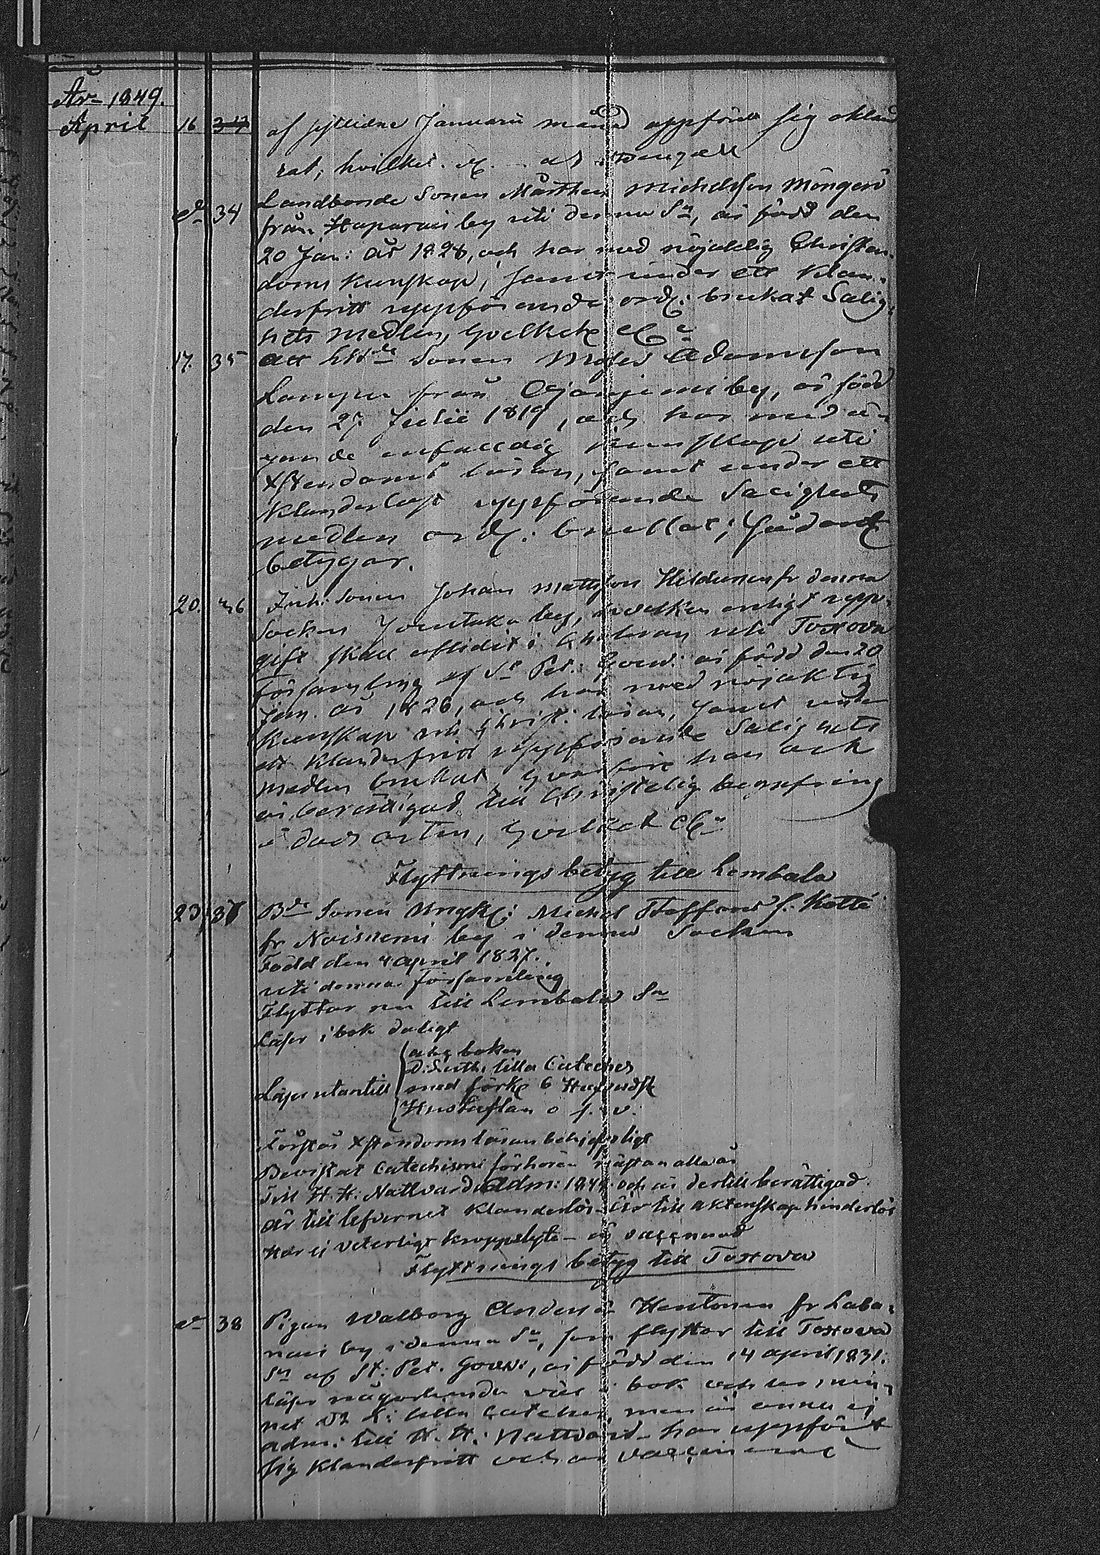 År 1849.
April 16 34 af sistledne Januarii månad uppfört sig okland
rat, hvilket
do 34 Landbonde Sonen Mårthen Michelsson
från Haparais by uti denna Sn, är född den
20 Jan: år 1828, och har med nöjaktig Christen-
doms kunskap, samt under ett klan-
derfritt uppförande ord: brukat Salig-
hets medlen, hvilket &c
17. 35 att Sonen Moses Adamsson
från by, är född
den 27 Julii 1819, och har med
enfaldig kunskap uti
Xstendoms läran, samt under ett
klanderlöst uppförande Salighets
medlen ord: brukat; sådant
betygar.
20. 36 Sonen Johan Mattsson Hildunen fr denna
Socken by, hvilken enligt upp-
gift skall aflidit i uti Toxova
församling af St Pet: Gouv: är född den 20
Jan. år 1826, och har med nöjaktig
kunskap uti Christ: läran, samt under
ett klanderfritt uppförande Salighets
medlen brukat, hvarföre han ock
är berättigad till Christelig begrafning
i dödsorten, hvilket &c
Flyttnings betyg till Lembala
23 37 Bde Sonen Michel Staffans s. Kotti
fr Noisniemi by i denna Socken
Född den 4 april 1827.
uti denna församling
Flyttar nu till Lembala Sn
Läser i bok dåligt
abc boken
D: Luth: lilla Cateches
Läser utantill med förkl 6 Hufvudst
Hustaflan o. s. v.
Förstår Xstendoms läran behjelpligt
Bevistat Catechismi förhören nästan alla år
Till H. H: Nattvard adm: 1848 och är dertill berättigad
Är till lefvernet klanderlös Är till äktenskap hinderlös
Har ej veterligt kroppslyte – är vaccinerad
Flyttnings betyg till Toxova
do 38 Pigan Walborg Anders dr Hentonen fr Laba-
nais by i denna Sn, som flyttar till Toxova
Sn af St: Pet. Gouv:, är född den 14 april 1831.
Läser någorlunda väl i bok och ur min-
net D: L: lilla Cateches, men är ännu ej
adm: till H. H: Nattvard har uppfört
sig klanderfritt och är vaccinerad